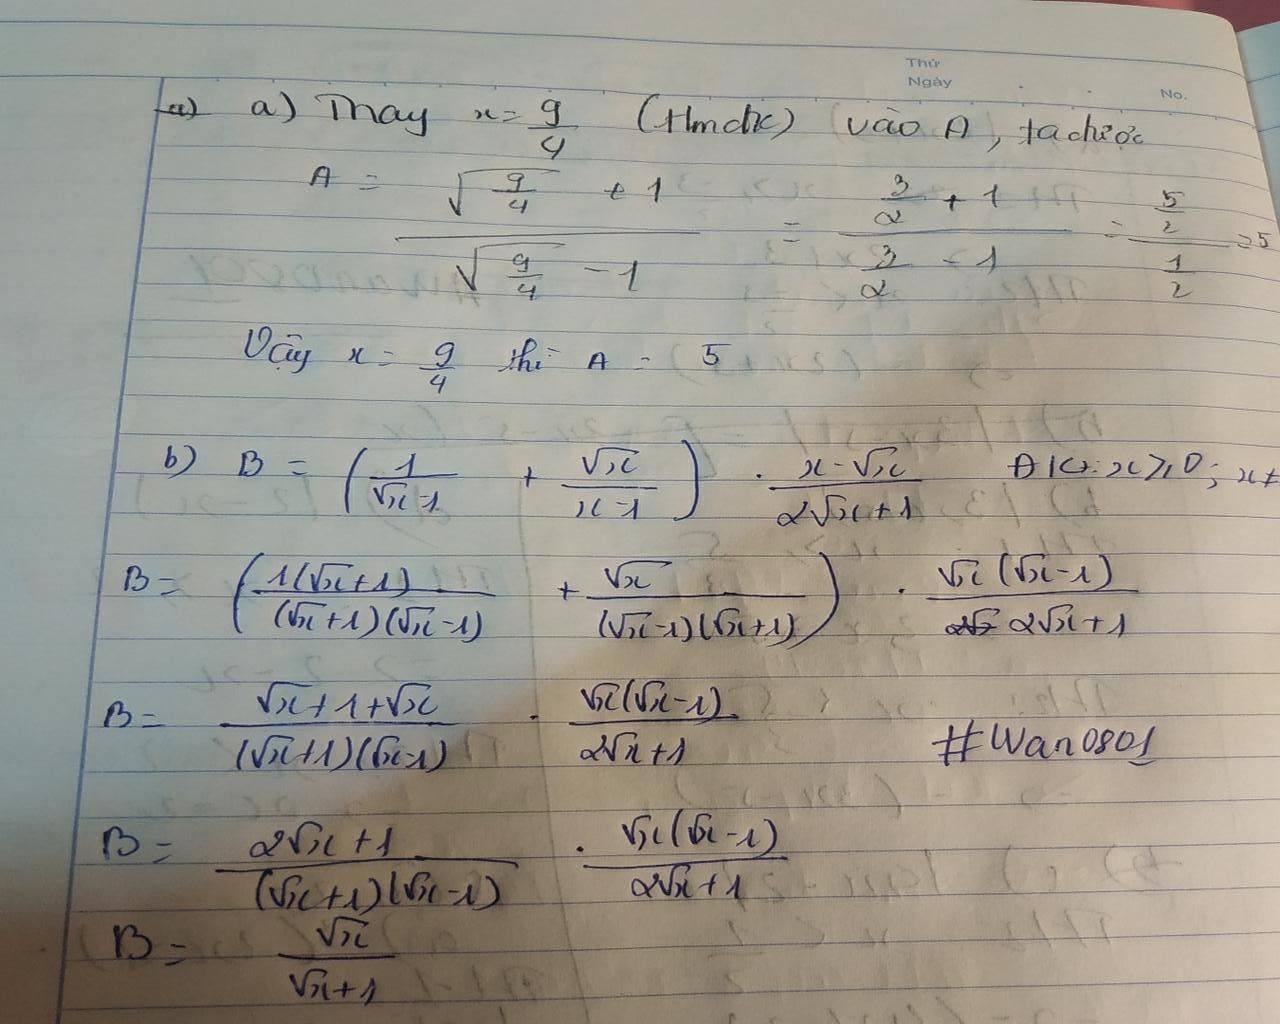 Thứ
Ngày
No.
a) Thay x = 9/4 (tmđk) vào A, ta được
A = (√(9/4) + 1)/(√(9/4) - 1) = (3/2 + 1)/(3/2 - 1) = (5/2)/(1/2) = 5
Vậy x = 9/4 thì A = 5
b) B = (1/(√x-1) + √x/(x-1)) . (x-√x)/(2√x+1) ĐK: x ≥ 0; x ≠
B = (1(√x+1)/((√x+1)(√x-1)) + √x/((√x-1)(√x+1))) . √x(√x-1)/(2√x+1)
B = (√x+1+√x)/((√x+1)(√x-1)) . √x(√x-1)/(2√x+1)
#Wan0801
B = (2√x+1)/((√x+1)(√x-1)) . √x(√x-1)/(2√x+1)
B = √x/(√x+1)